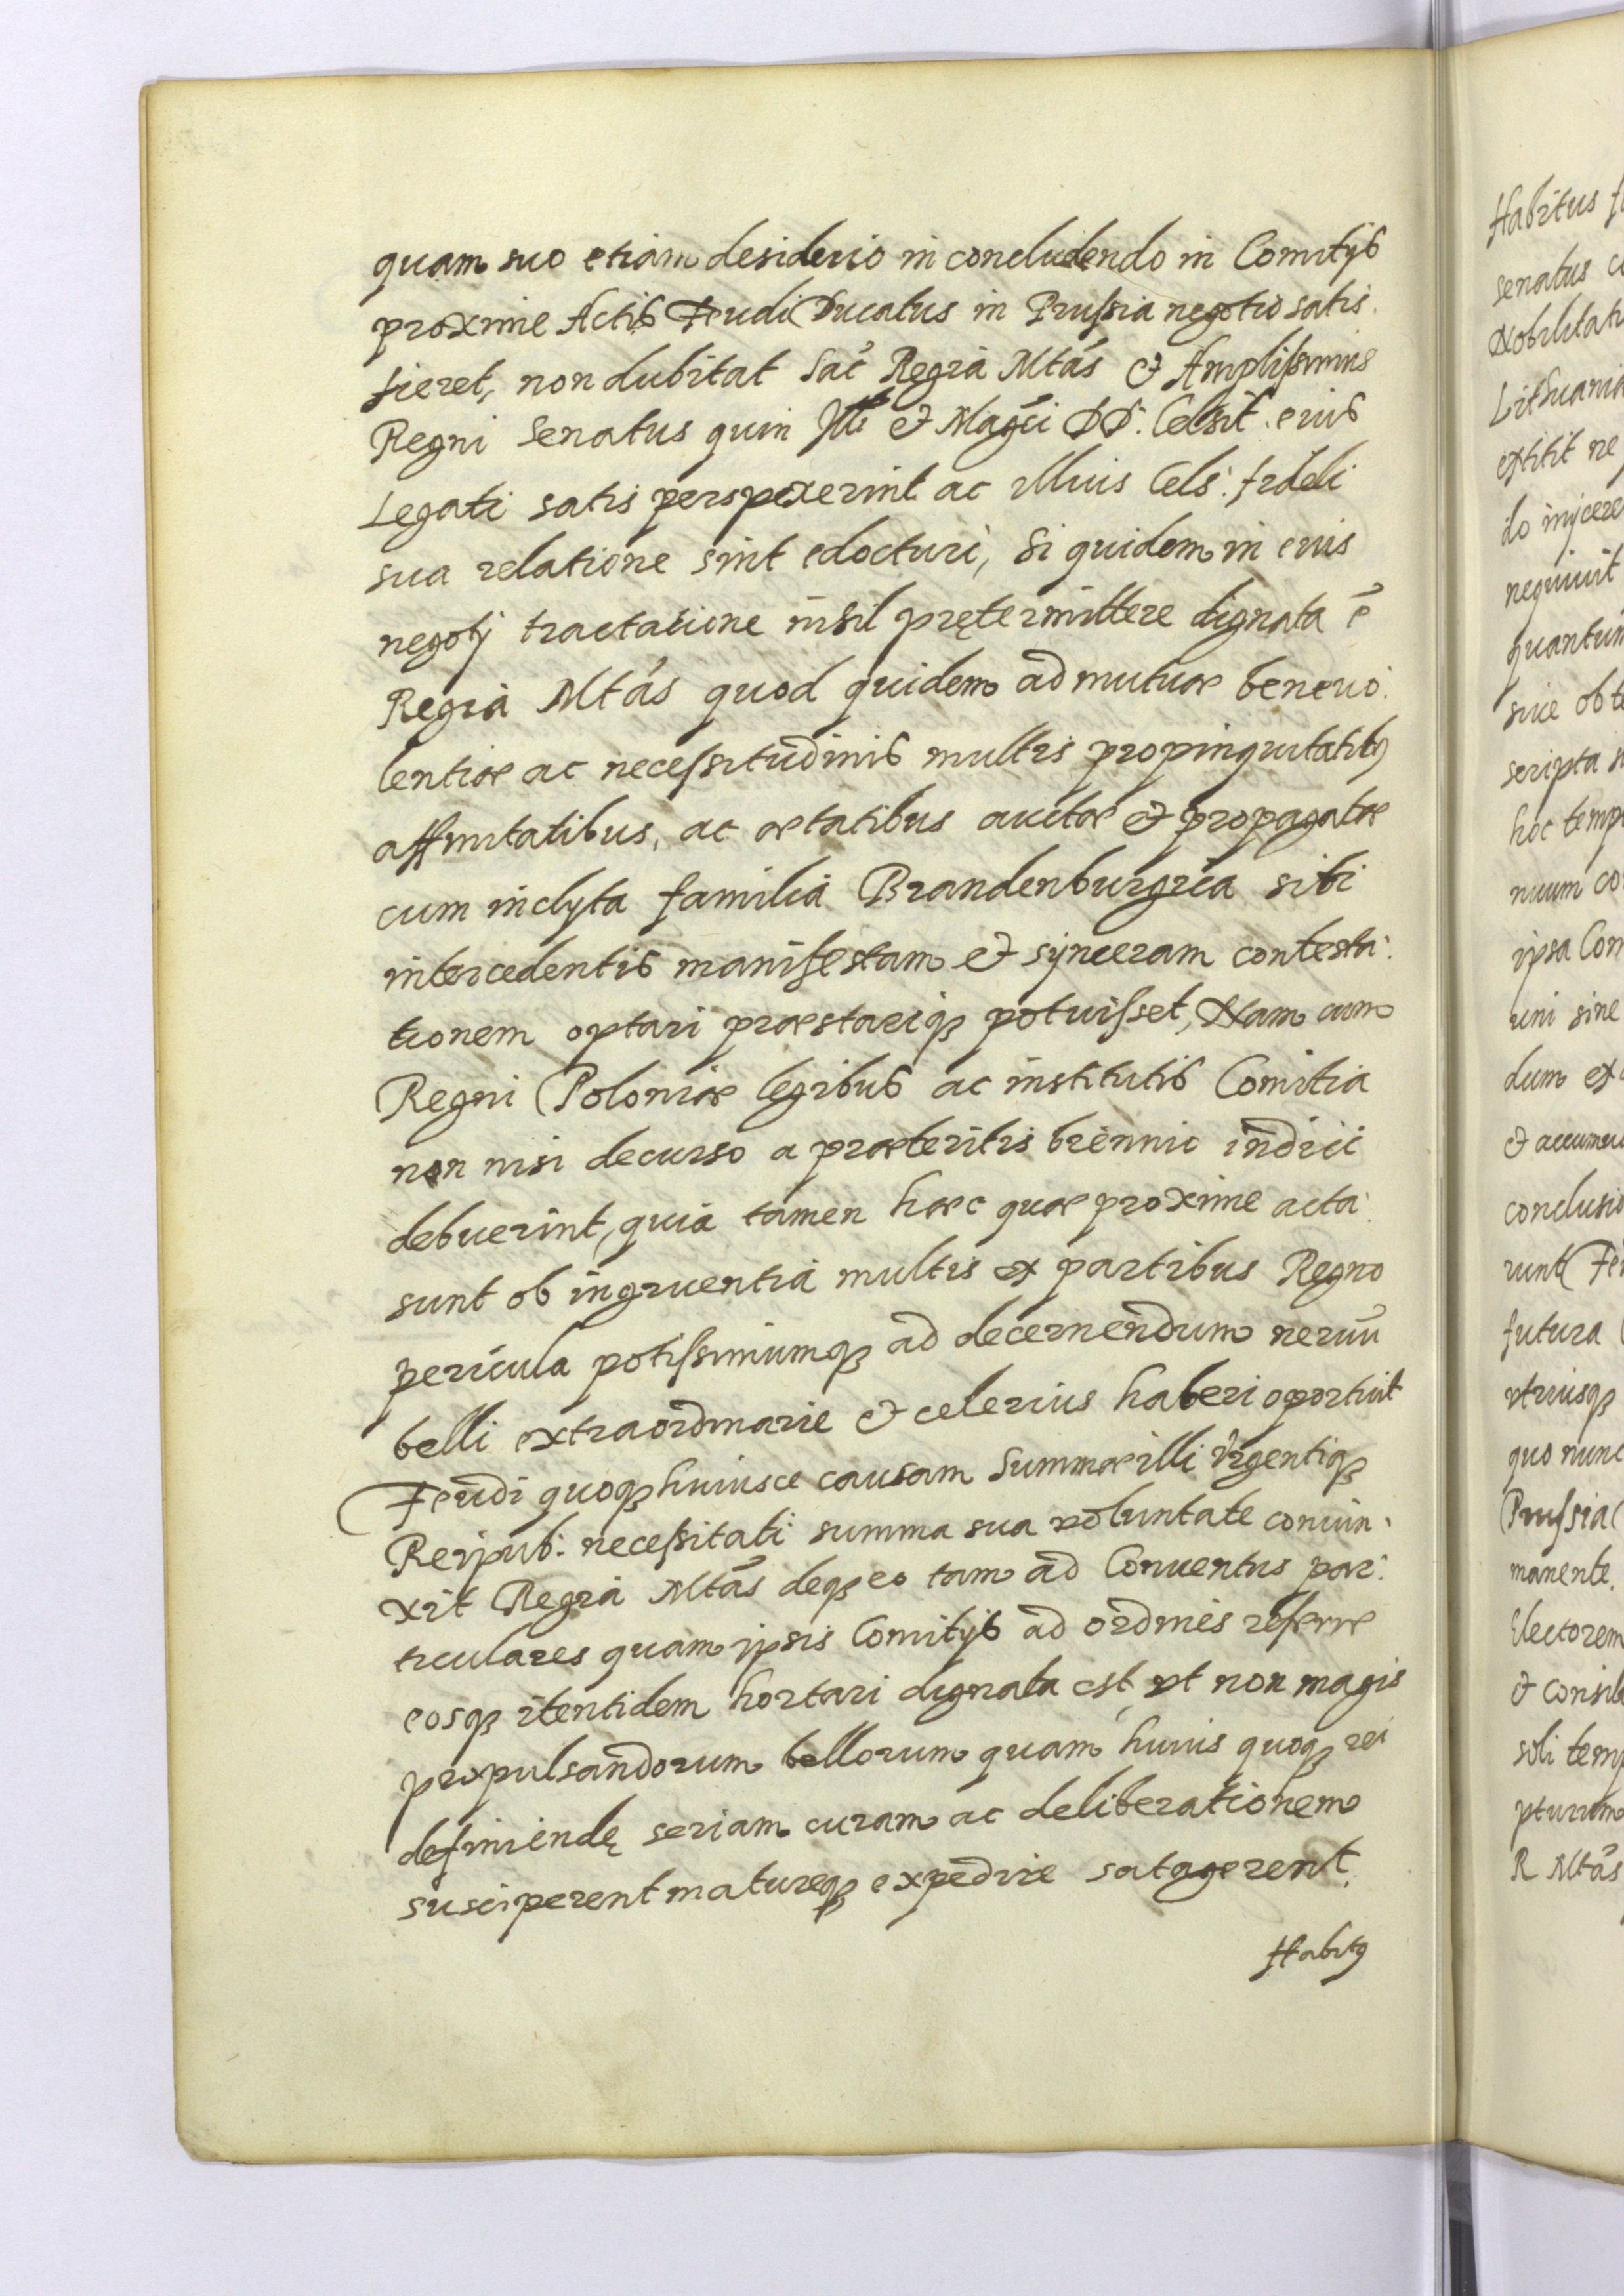 quam suo etiam desiderio in concludendo in Comitijs
proxime Actis Feudi Ducatus in Prussia negotio satis.
fieret, non dubitat Sac Regia Mtas & Amplissimus
Regni Senatus quin Illi & Magci DD. Celsit. eius
Legati satis perspexerint ac illius Cels: fideli
sua relatione sint edocturi, Si quidem in eius
negotj tractatione nihil prętermittere dignata ē
Regia Mtas quod quidem ad mutuae beneuo:
lentiae ac necessitudinis multis propinquitatibq
affinitatibus, ac aetatibus auctae & propagatae
cum inclyta familia Brandenburgica sibi
intercedentis manifestam & synceram contesta:
tionem optari praestariq potuisset, Nam cum
Regni Poloniae legibus ac institutis Comitia
non nisi decurso a praeteritis biennio indici
debuerint, quia tamen haec quae proxime acta
sunt ob ingruentia multis ex partibus Regno
pericula potissimumq ad decernendum neruū
belli extraordinarie & celerius haberi oportuit
Feudi quoq huiusce causam Summae illi Vrgentiq
Reipub: necessitati summa sua voluntate coniun:
xit Regia Mtas deq eo tam ad Conuentus par:
ticulares quam ipsis Comitijs ad ordines referre
eosq itentidem hortari dignata est, vt non magis
propulsandorum bellorum quam huius quoq rei
definiendę seriam curam ac deliberationem
susciperent matureq expedire satagerent.
Habitq
Habitus
senatus
Nobilitati
Lithuania
extitit ne
do injcere
nequiuit
quantum
siue
scripta
hoc temp
nuum
ipsa Com
uni sine
dum ex
conclusio
runt
futura
vtriusq
quo nunc
Prussia
manente.
Electorem
soli temp
R Mtas